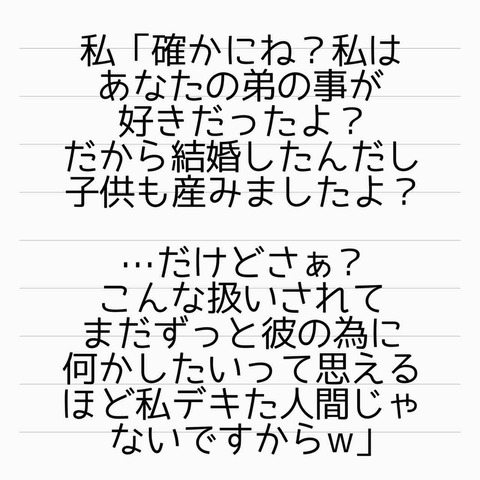 私「確かにね？私は
あなたの弟の事が
好きだったよ？
だから結婚したんだし
子供も産みましたよ？
…だけどさぁ？
こんな扱いされて
まだずっと彼の為に
何かしたいって思える
ほど私デキた人間じゃ
ないですからw」